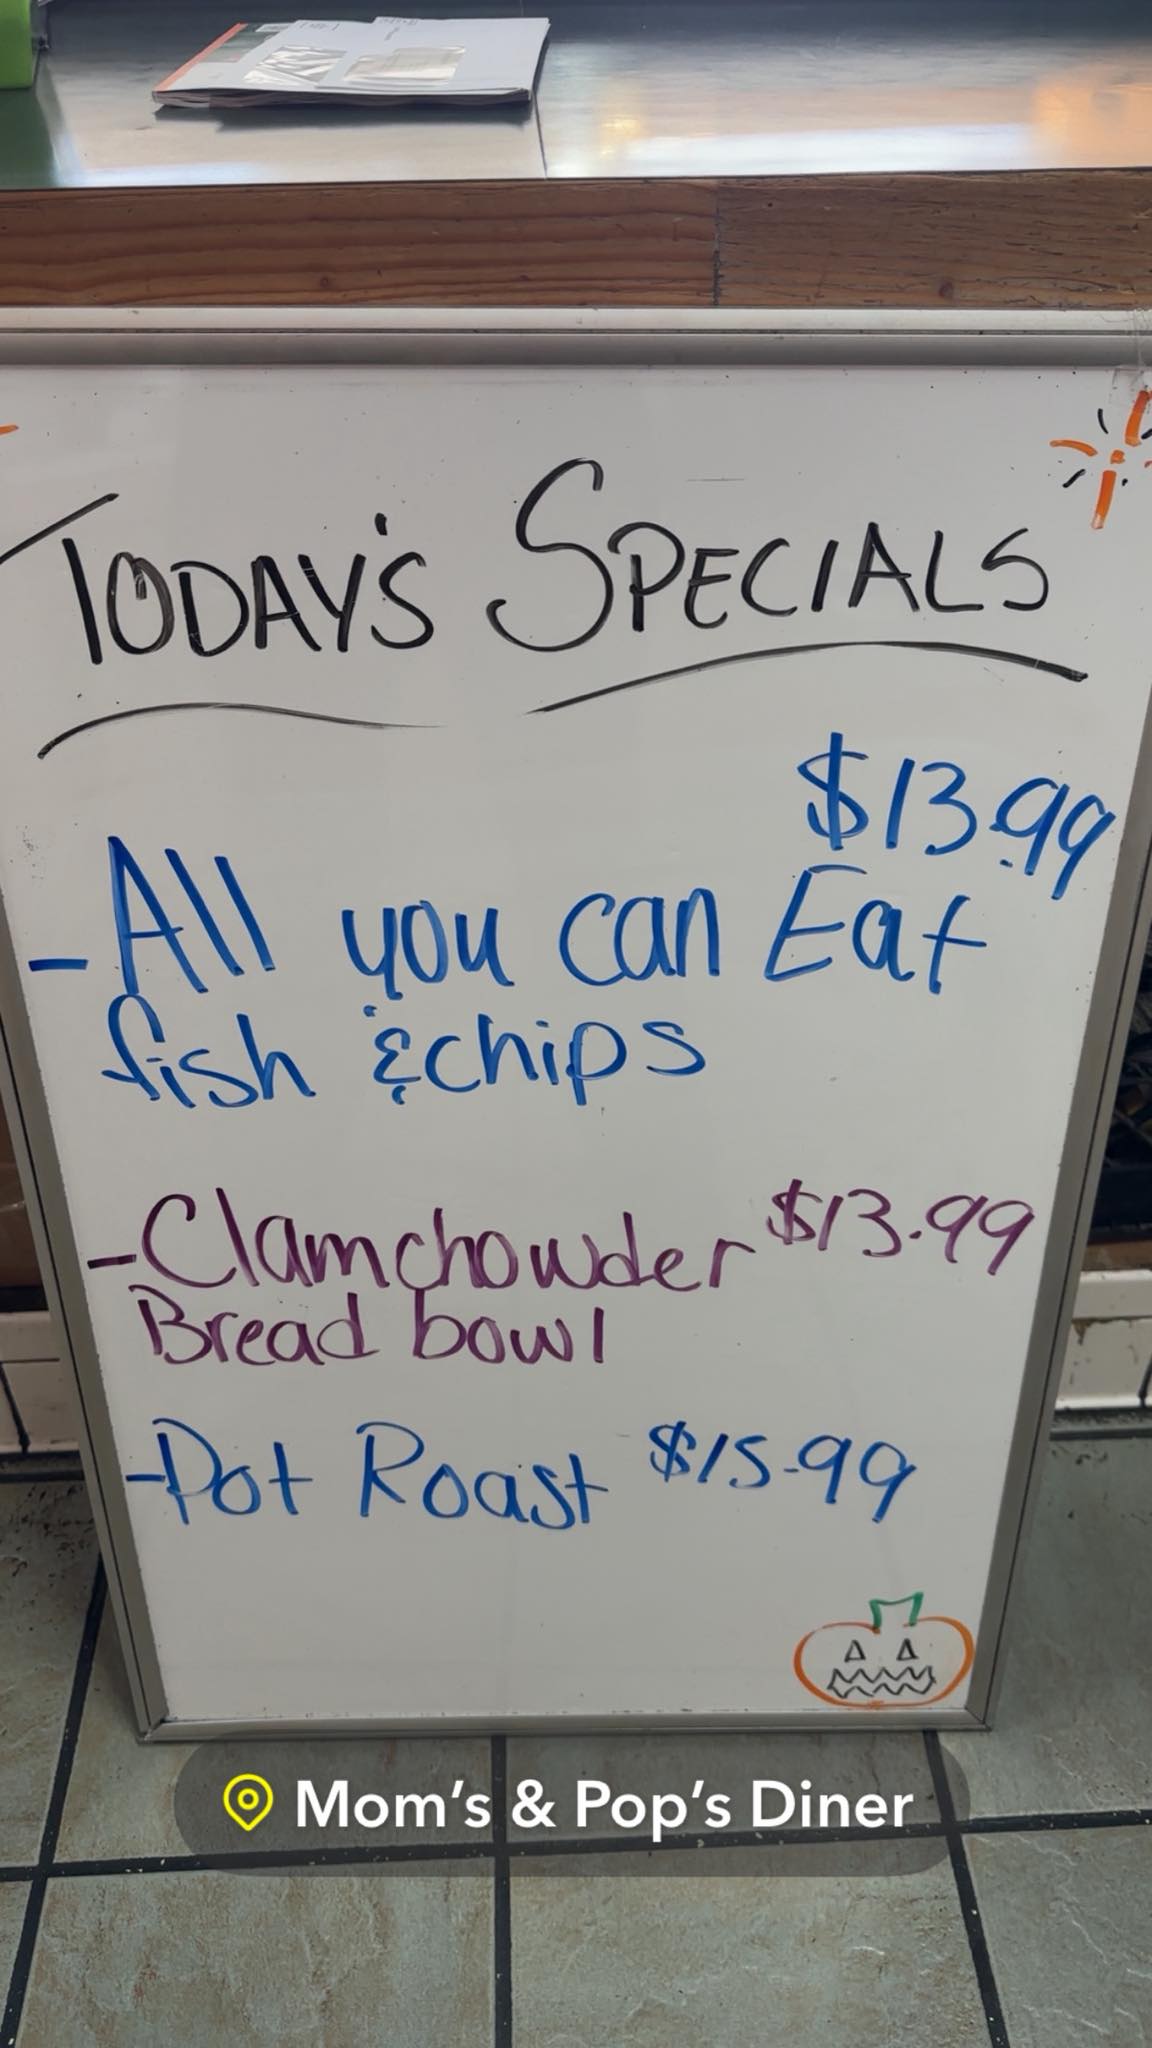 TODAY'S SPECIALS
$13.99
- All you can Eat
fish & chips
- Clamchowder $13.99
Bread bowl
- Pot Roast $15.99
Mom's & Pop's Diner